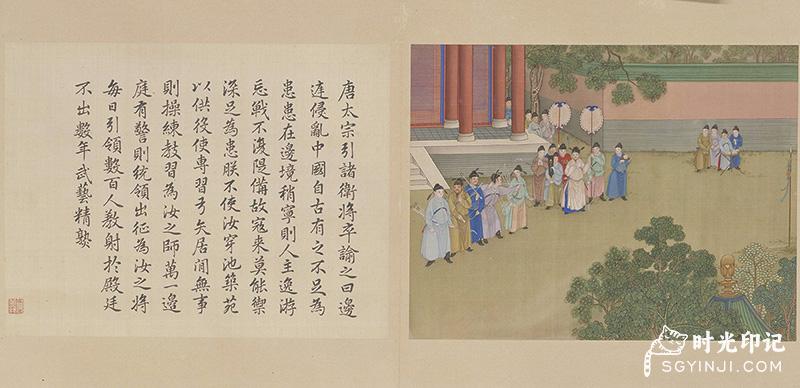 唐太宗引諸衛將卒諭之曰邊
廷侵亂中國自古有之不足為
患患在邊境稍寧則人主逸游
忘戰不復隄備故寇来莫能禦
深足為患朕不使汝穿池築苑
以供役使專習弓矢居閒無事
則操練教習為汝之師萬一邊
庭有警則統領出征為汝之將
每日引領數百人教射於殿廷
不出數年武藝精熟
时光印记
SGYINJI.COM